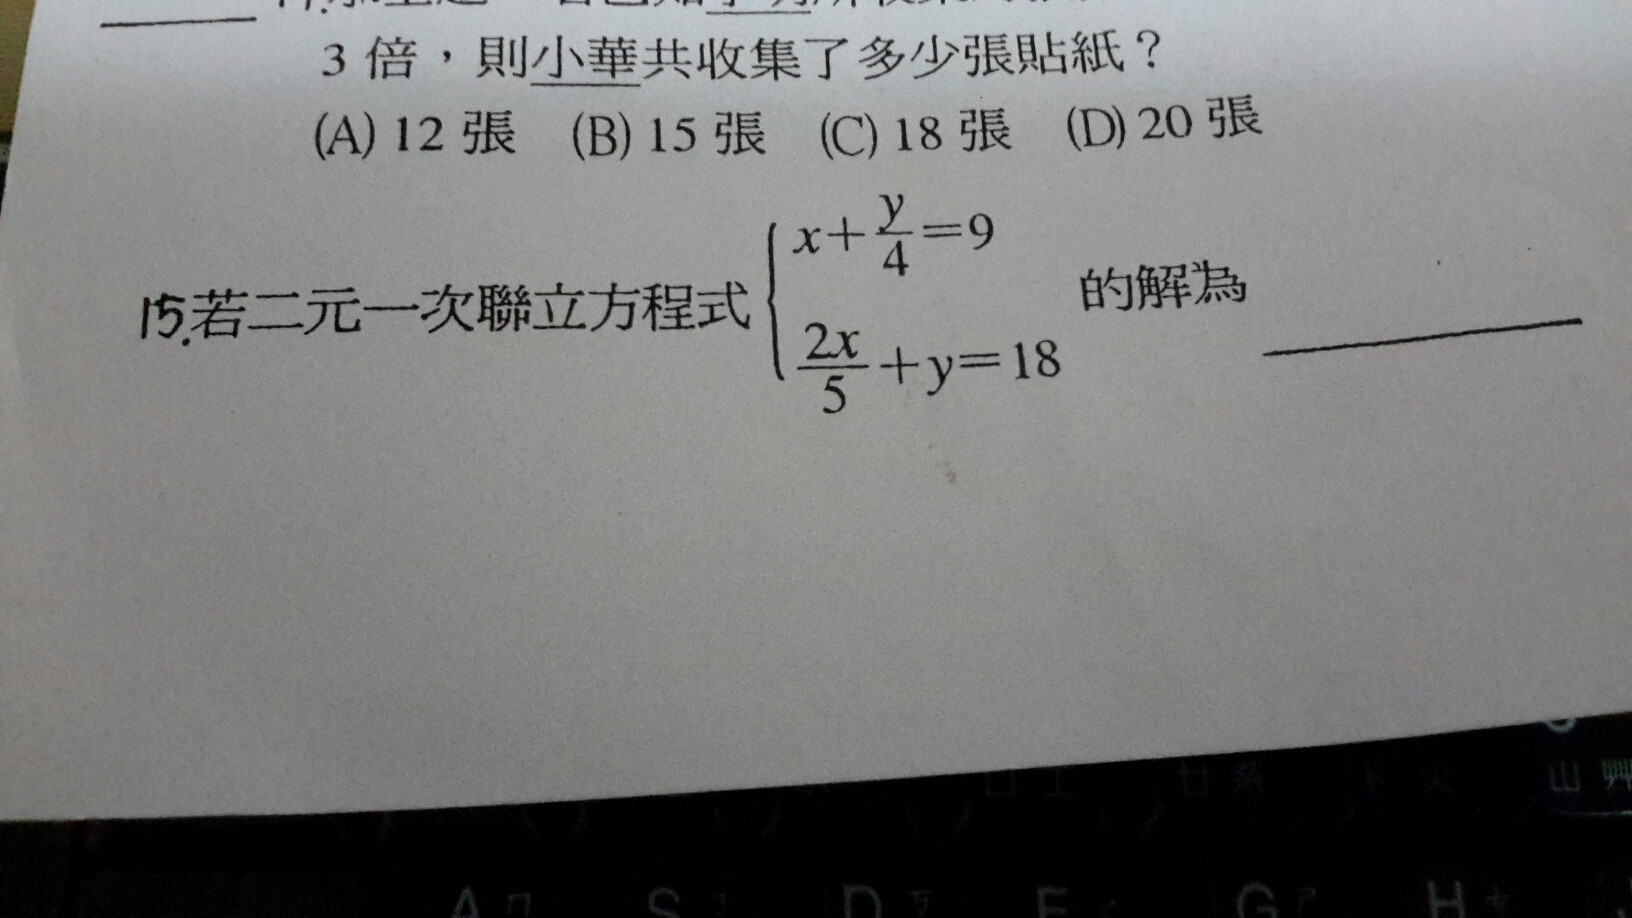 3 倍，則小華共收集了多少張貼紙？
(A) 12 張 (B) 15 張 (C) 18 張 (D) 20 張
15.若二元一次聯立方程式 { x+y/4=9 的解為
2x/5+y=18
A ㄇ S D ㄎ F G ㄕ H